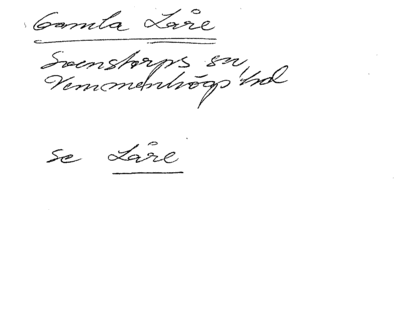 Gamla Låre
Svenstorps sn,
Vemmenhögs hd
se Låre